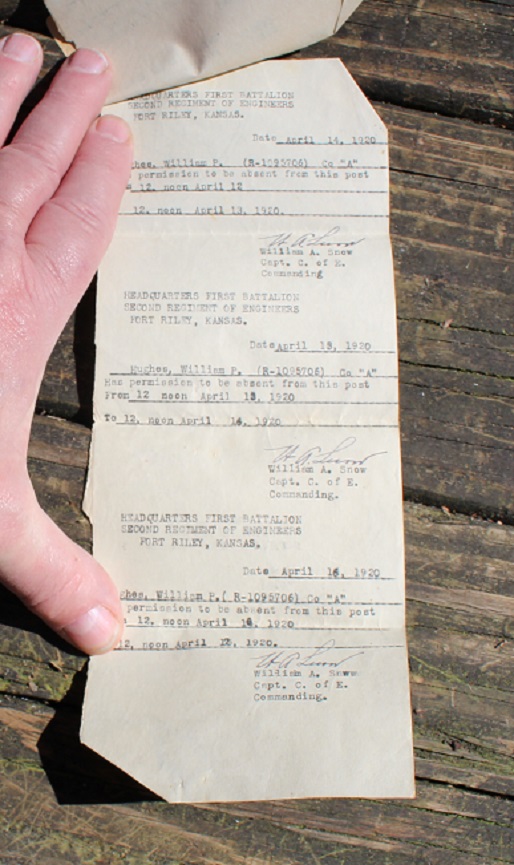 HEADQUARTERS FIRST BATTALION
SECOND REGIMENT OF ENGINEERS
FORT RILEY, KANSAS.
Date April 14, 1920
hes, William P. (R-1095706) Co "A"
permission to be absent from this post
12. noon April 12
12. noon April 13, 1920.
W A Snow
William A. Snow
Capt. C. of E.
Commanding
HEADQUARTERS FIRST BATTALION
SECOND REGIMENT OF ENGINEERS
FORT RILEY, KANSAS.
Date April 15, 1920
Hughes, William P. (R-1095706) Co "A"
Has permission to be absent from this post
From 12 noon April 13, 1920
To 12, noon April 14, 1920
W A Snow
William A. Snow
Capt. C. of E.
Commanding.
HEADQUARTERS FIRST BATTALION
SECOND REGIMENT OF ENGINEERS
FORT RILEY, KANSAS.
Date April 16, 1920
ghes, William P.( R-1095706) Co "A"
permission to be absent from this post
12, noon April 1920
12, noon April 1920.
W A Snow
William A.
Capt. C. of E.
Commanding.